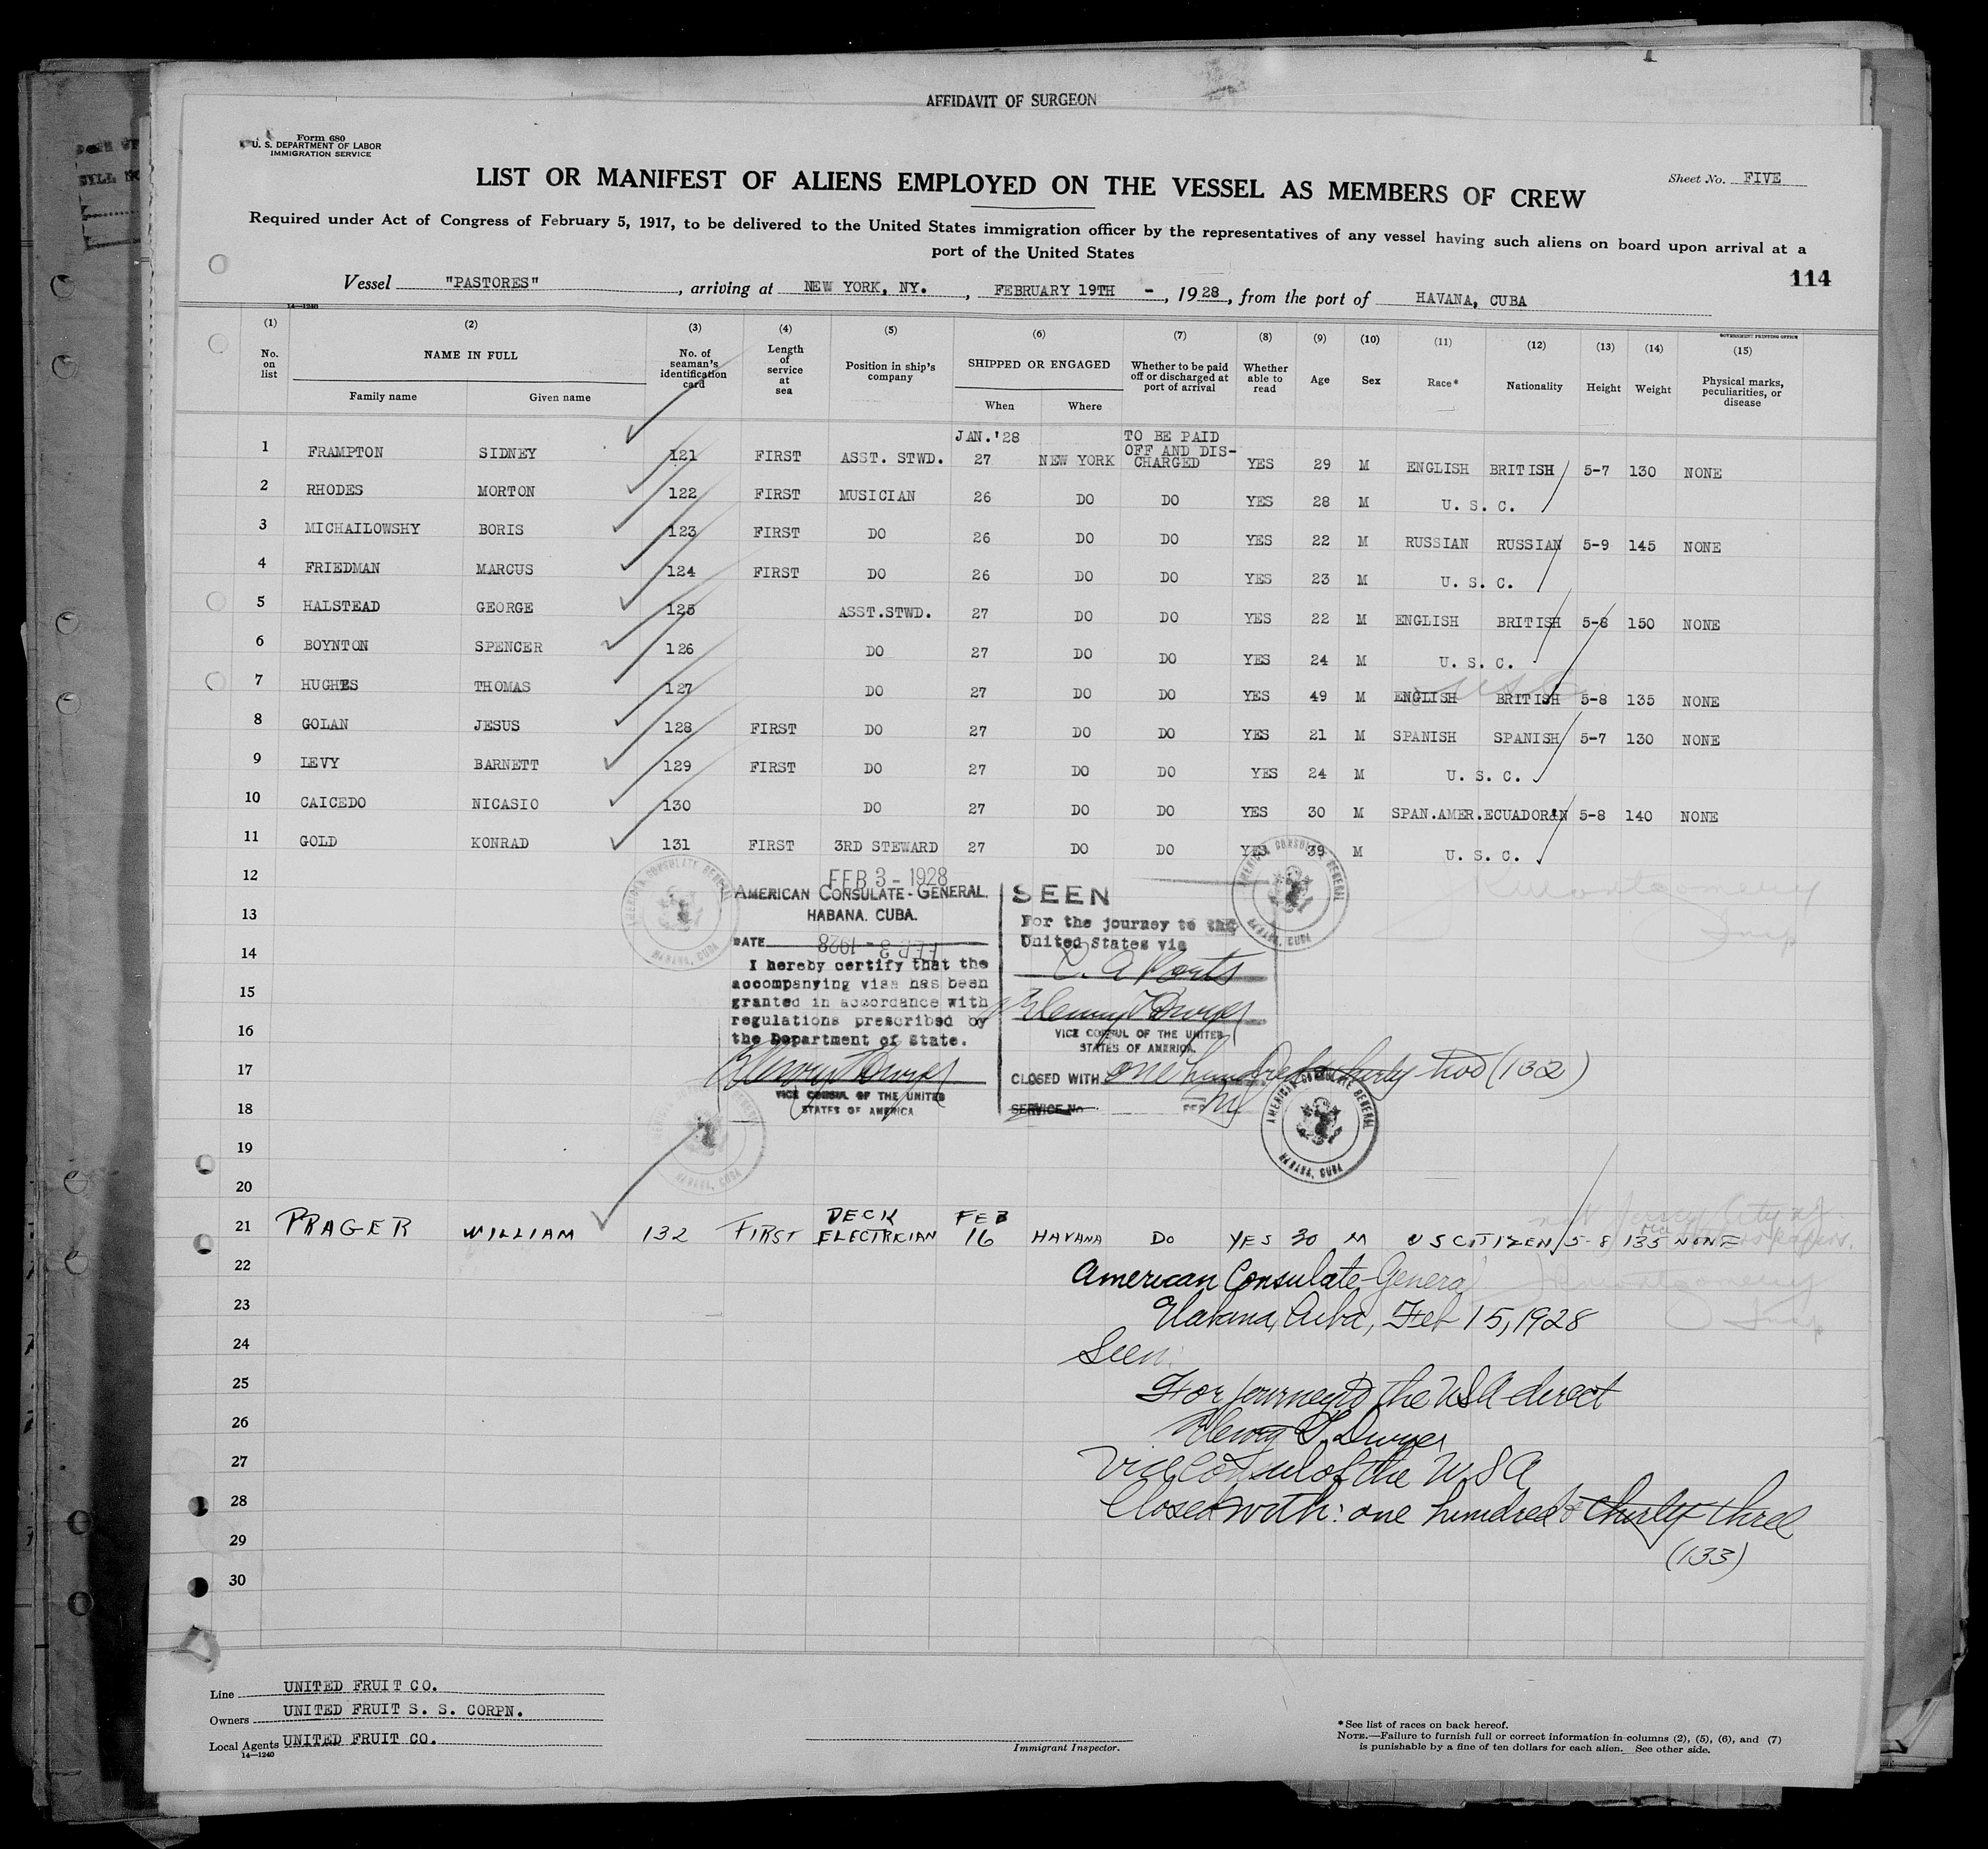 AFFIDAVIT OF SURGEON
Form 680
U. S. DEPARTMENT OF LABOR
IMMIGRATION SERVICE
LIST OR MANIFEST OF ALIENS EMPLOYED ON THE VESSEL AS MEMBERS OF CREW
Sheet No. FIVE
Required under Act of Congress of February 5, 1917, to be delivered to the United States immigration officer by the representatives of any vessel having such aliens on board upon arrival at a
port of the United States
114
Vessel "PASTORES", arriving at NEW YORK, NY., FEBRUARY 19TH -, 1928, from the port of HAVANA, CUBA
14—1240
GOVERNMENT PRINTING OFFICE
(1) (2) (3) (4) (5) (6) (7) (8) (9) (10) (11) (12) (13) (14) (15)
No. on list
NAME IN FULL
Family name Given name
No. of seaman's identification card
Length of service at sea
Position in ship's company
SHIPPED OR ENGAGED
When Where
Whether to be paid off or discharged at port of arrival
Whether able to read
Age
Sex
Race*
Nationality
Height
Weight
Physical marks, peculiarities, or disease
JAN.'28 TO BE PAID OFF AND DIS-CHARGED
1 FRAMPTON SIDNEY 121 FIRST ASST. STWD. 27 NEW YORK YES 29 M ENGLISH BRITISH 5-7 130 NONE
2 RHODES MORTON 122 FIRST MUSICIAN 26 DO DO YES 28 M U. S. C.
3 MICHAILOWSHY BORIS 123 FIRST DO 26 DO DO YES 22 M RUSSIAN RUSSIAN 5-9 145 NONE
4 FRIEDMAN MARCUS 124 FIRST DO 26 DO DO YES 23 M U. S. C.
5 HALSTEAD GEORGE 125 ASST.STWD. 27 DO DO YES 22 M ENGLISH BRITISH 5-8 150 NONE
6 BOYNTON SPENCER 126 DO 27 DO DO YES 24 M U. S. C.
7 HUGHES THOMAS 127 DO 27 DO DO YES 49 M ENGLISH BRITISH 5-8 135 NONE
8 GOLAN JESUS 128 FIRST DO 27 DO DO YES 21 M SPANISH SPANISH 5-7 130 NONE
9 LEVY BARNETT 129 FIRST DO 27 DO DO YES 24 M U. S. C.
10 CAICEDO NICASIO 130 DO 27 DO DO YES 30 M SPAN.AMER. ECUADORAN 5-8 140 NONE
11 GOLD KONRAD 131 FIRST 3RD STEWARD 27 DO DO YES 39 M U. S. C.
12
13
14
15
16
17
18
19
20
FEB 3 - 1928
AMERICAN CONSULATE-GENERAL.
HABANA. CUBA.
DATE FEB 3 - 1928
I hereby certify that the
accompanying visa has been
granted in accordance with
regulations prescribed by
the Department of State.
Henry T. Dwyer
VICE CONSUL OF THE UNITED
STATES OF AMERICA
SEEN
For the journey to the
United States via
C. A. Ports
Henry T. Dwyer
VICE CONSUL OF THE UNITED
STATES OF AMERICA.
CLOSED WITH one hundred & thirty two (132)
SERVICE No
AMERICAN CONSULATE GENERAL HABANA, CUBA
AMERICAN CONSULATE GENERAL HABANA, CUBA
AMERICAN CONSULATE GENERAL HABANA, CUBA
JKMontgomery
Insp
21 PRAGER WILLIAM 132 FIRST DECK ELECTRICIAN FEB 16 HAVANA DO YES 30 M US CITIZEN 5-8 135 NONE
22
23
24
25
26
27
28
29
30
American Consulate General
Habana, Cuba, Feb 15, 1928
Seen:
For journey to the USA direct
Henry T. Dwyer
Vice Consul of the USA
Closed with: one hundred & thirty three
(133)
JKMontgomery
Insp
Line UNITED FRUIT CO.
Owners UNITED FRUIT S. S. CORPN.
Local Agents UNITED FRUIT CO.
14—1240
Immigrant Inspector.
*See list of races on back hereof.
NOTE.—Failure to furnish full or correct information in columns (2), (5), (6), and (7)
is punishable by a fine of ten dollars for each alien. See other side.